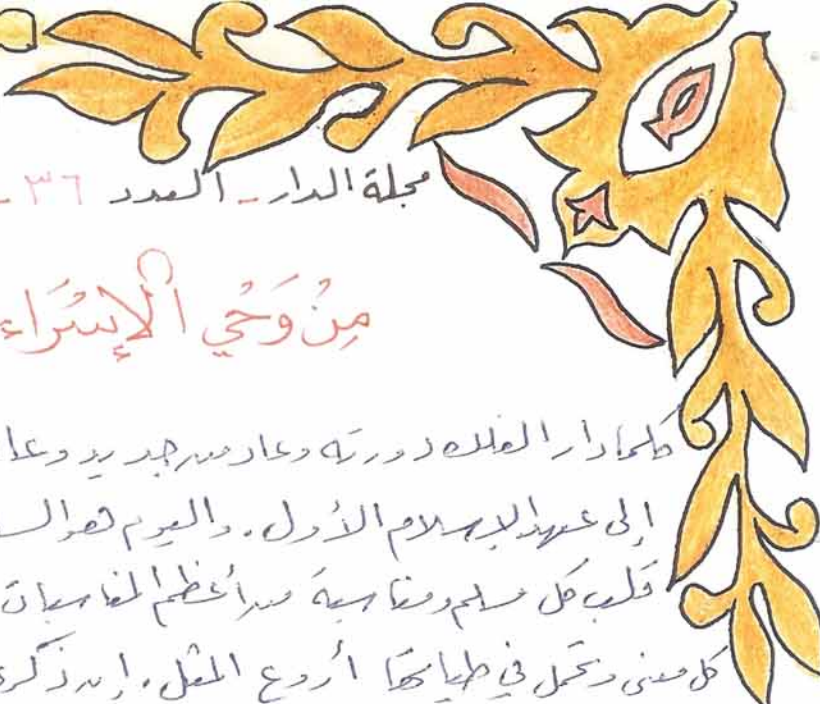 مجلة الدار - العدد ٣٦ -
مِنْ وَحْيِ الْإِسْرَاء
كلما دار الفلك دورته وعاد من جديد وعا
إلى عهد الإسلام الأول. واليوم هو الس
قلب كل مسلم ومناسبة من أعظم المناسبات
كل معنى وتحمل في طياتها أروع المثل. إن ذكرى